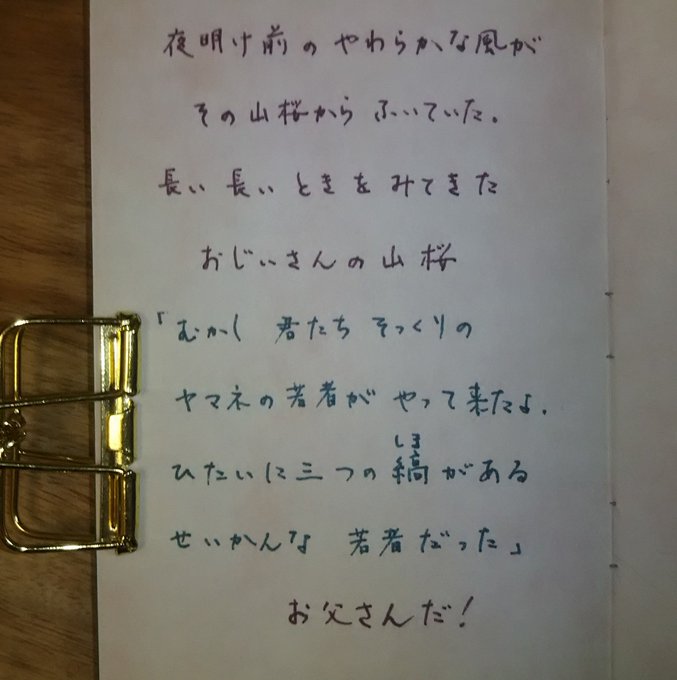 夜明け前のやわらかな風が
その山桜からふいていた。
長い長いときをみてきた
おじいさんの山桜
「むかし 君たちそっくりの
ヤマネの若者がやって来たよ.
しま
ひたいに三つの縞がある
せいかんな 若者だった」
お父さんだ!